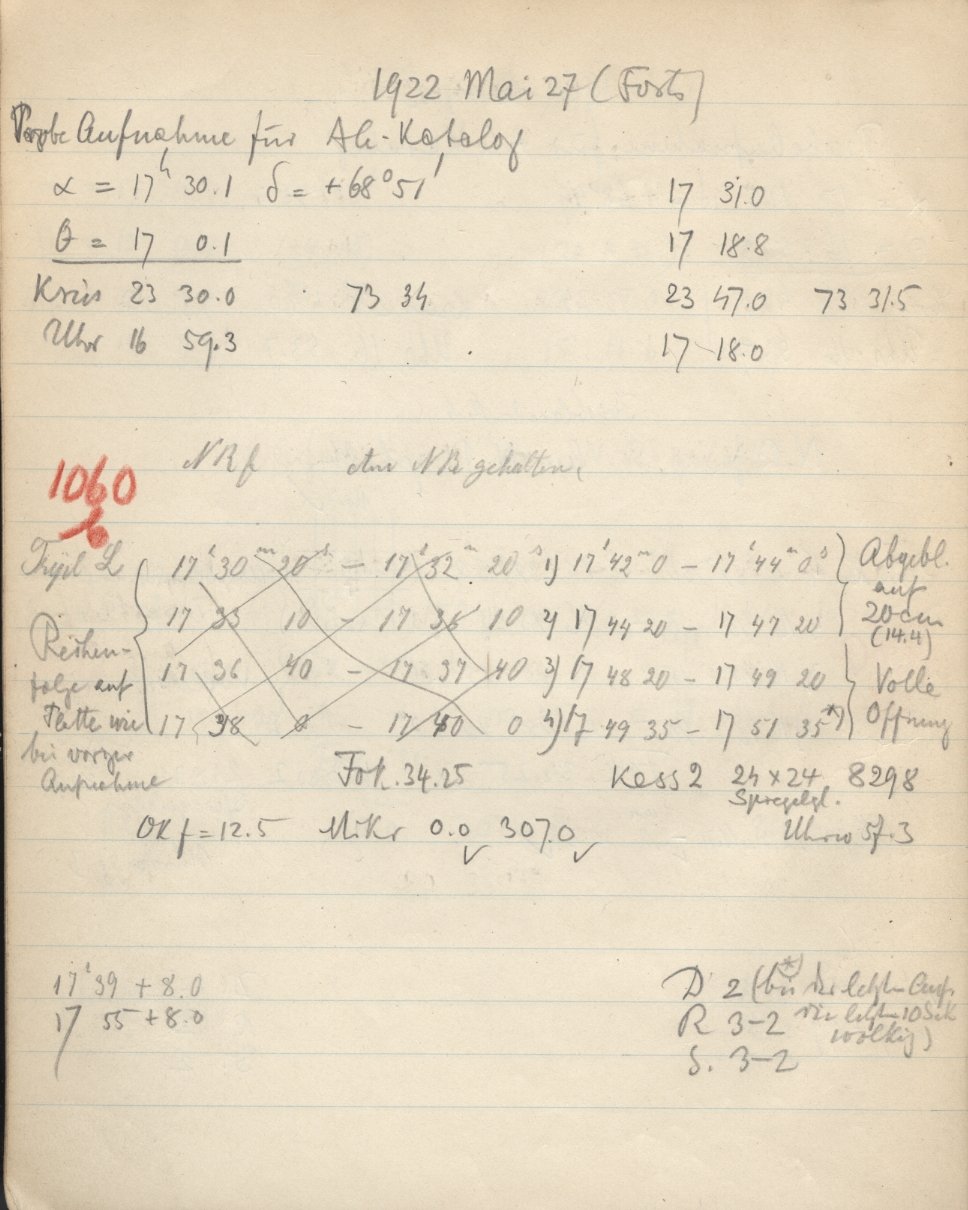 1922 Mai 27 (Forts)
Probe Aufnahme für AG-Katalog
α = 17h 30.1 δ = +68° 51' 17 31.0
θ = 17 0.1 17 18.8
Kreis 23 30.0 73 34 23 47.0 73 31.5
Uhr 16 59.3 17 18.0
NRf Am NR gehalten.
1060
b
Tripl L 17 30m 20s — 17 32m 20s 1) 17 42m 0 — 17 44m 0s Abgebl. auf 20cm (14.4)
17 33 10 — 17 36 10 2) 17 44 20 — 17 47 20
Reihenfolge auf Platte wie bei voriger Aufnahme
17 36 40 — 17 37 40 3) 17 48 20 — 17 49 20 Volle Öffnung
17 38 0 — 17 40 0 4) 17 49 35 — 17 51 35*)
Fok. 34.25 Kass 2 24 x 24 8298
Spiegelgl.
OKf = 12.5 Mikr 0.0 307.0 Uhrw 57.3
17 39 + 8.0
17 55 + 8.0
D 2 (*) bei der letzten Aufn.
R 3-2 die letzten 10 Sek
wolkig)
S. 3-2